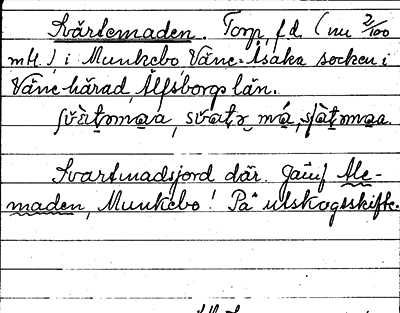 Svärtemaden. Torp, f.d. (nu 2/100
mtl.) i Munkebo Väne-Åsaka socken i
Väne härad, Älfsborgs län.
Svartmadsjord där. Jämf Ale-
maden, Munkebo! På utskogsskifte.